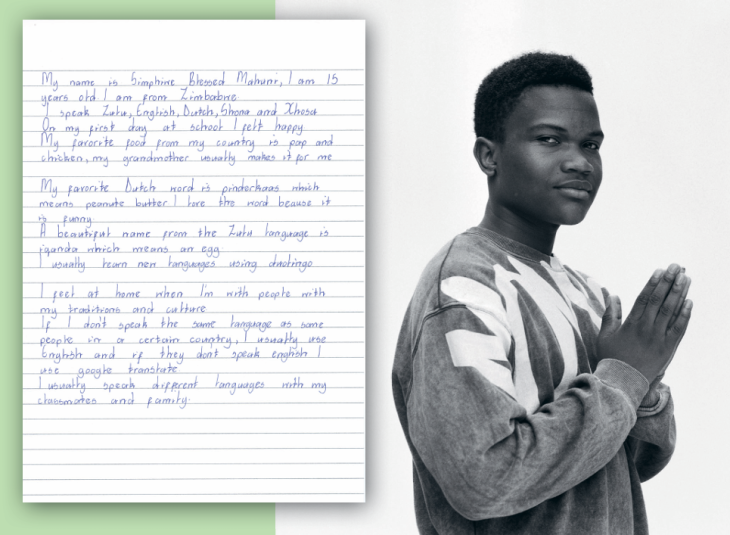 My name is Simphiwe Blessed Mahuni, I am 15
years old I am from Zimbabwe
I speak Zulu, English, Dutch, Shona and Xhosa
On my first day at school I felt happy
My favorite food from my country is pap and
chicken, my grandmother usually makes it for me
My favorite Dutch word is pinderkaas which
means peanute butter I love the word because it
is funny
A beautiful name from the Zulu language is
iqanda which means an egg
I usually learn new languages using duolingo
I feel at home when I'm with people with
my traditions and culture
If I don't speak the same language as some
people in a certain country, I usually use
English and if they dont speak english I
use google translate
I usually speak different languages with my
classmates and family.